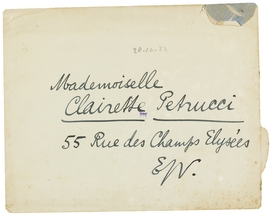 28-10-32
Mademoiselle
Clairette Petrucci
55 Rue des Champs Elysées
E/V.